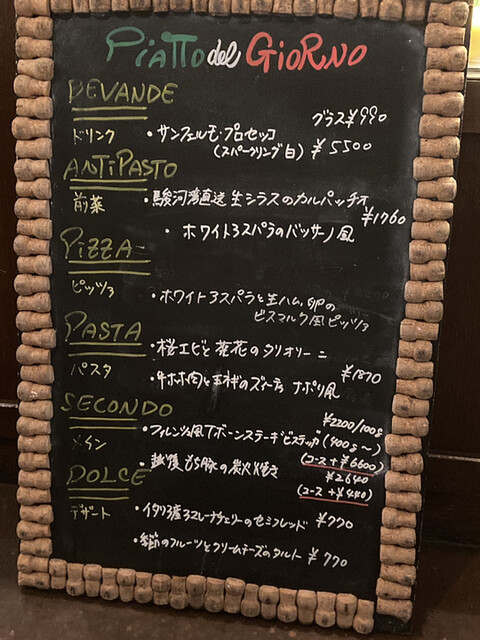 PIATTO del GIORNO
BEVANDE
グラス¥990
ドリンク ・サンフェルモ・プロセッコ
(スパークリング白) ¥5500
ANTIPASTO
前菜 ・駿河湾直送生シラスのカルパッチオ
¥1760
・ホワイトアスパラのバッサーノ風
PIZZA
ピッツァ ・ホワイトアスパラと生ハム、卵の
ビスマルク風ピッツァ
PASTA
・桜エビと菜花のタリオリーニ
¥1870
パスタ ・牛ホホ肉と玉ねぎの ナポリ風
SECONDO
¥2200/100g
・フィレンツェ風Tボーンステーキ ビステッカ (400g〜)
メイン (コース+¥6600)
・越後もち豚の炭火焼き ¥2640
(コース+¥440)
DOLCE
デザート ・イタリア産アマレーナチェリーのセミフレッド ¥770
・季節のフルーツとクリームチーズのタルト ¥770